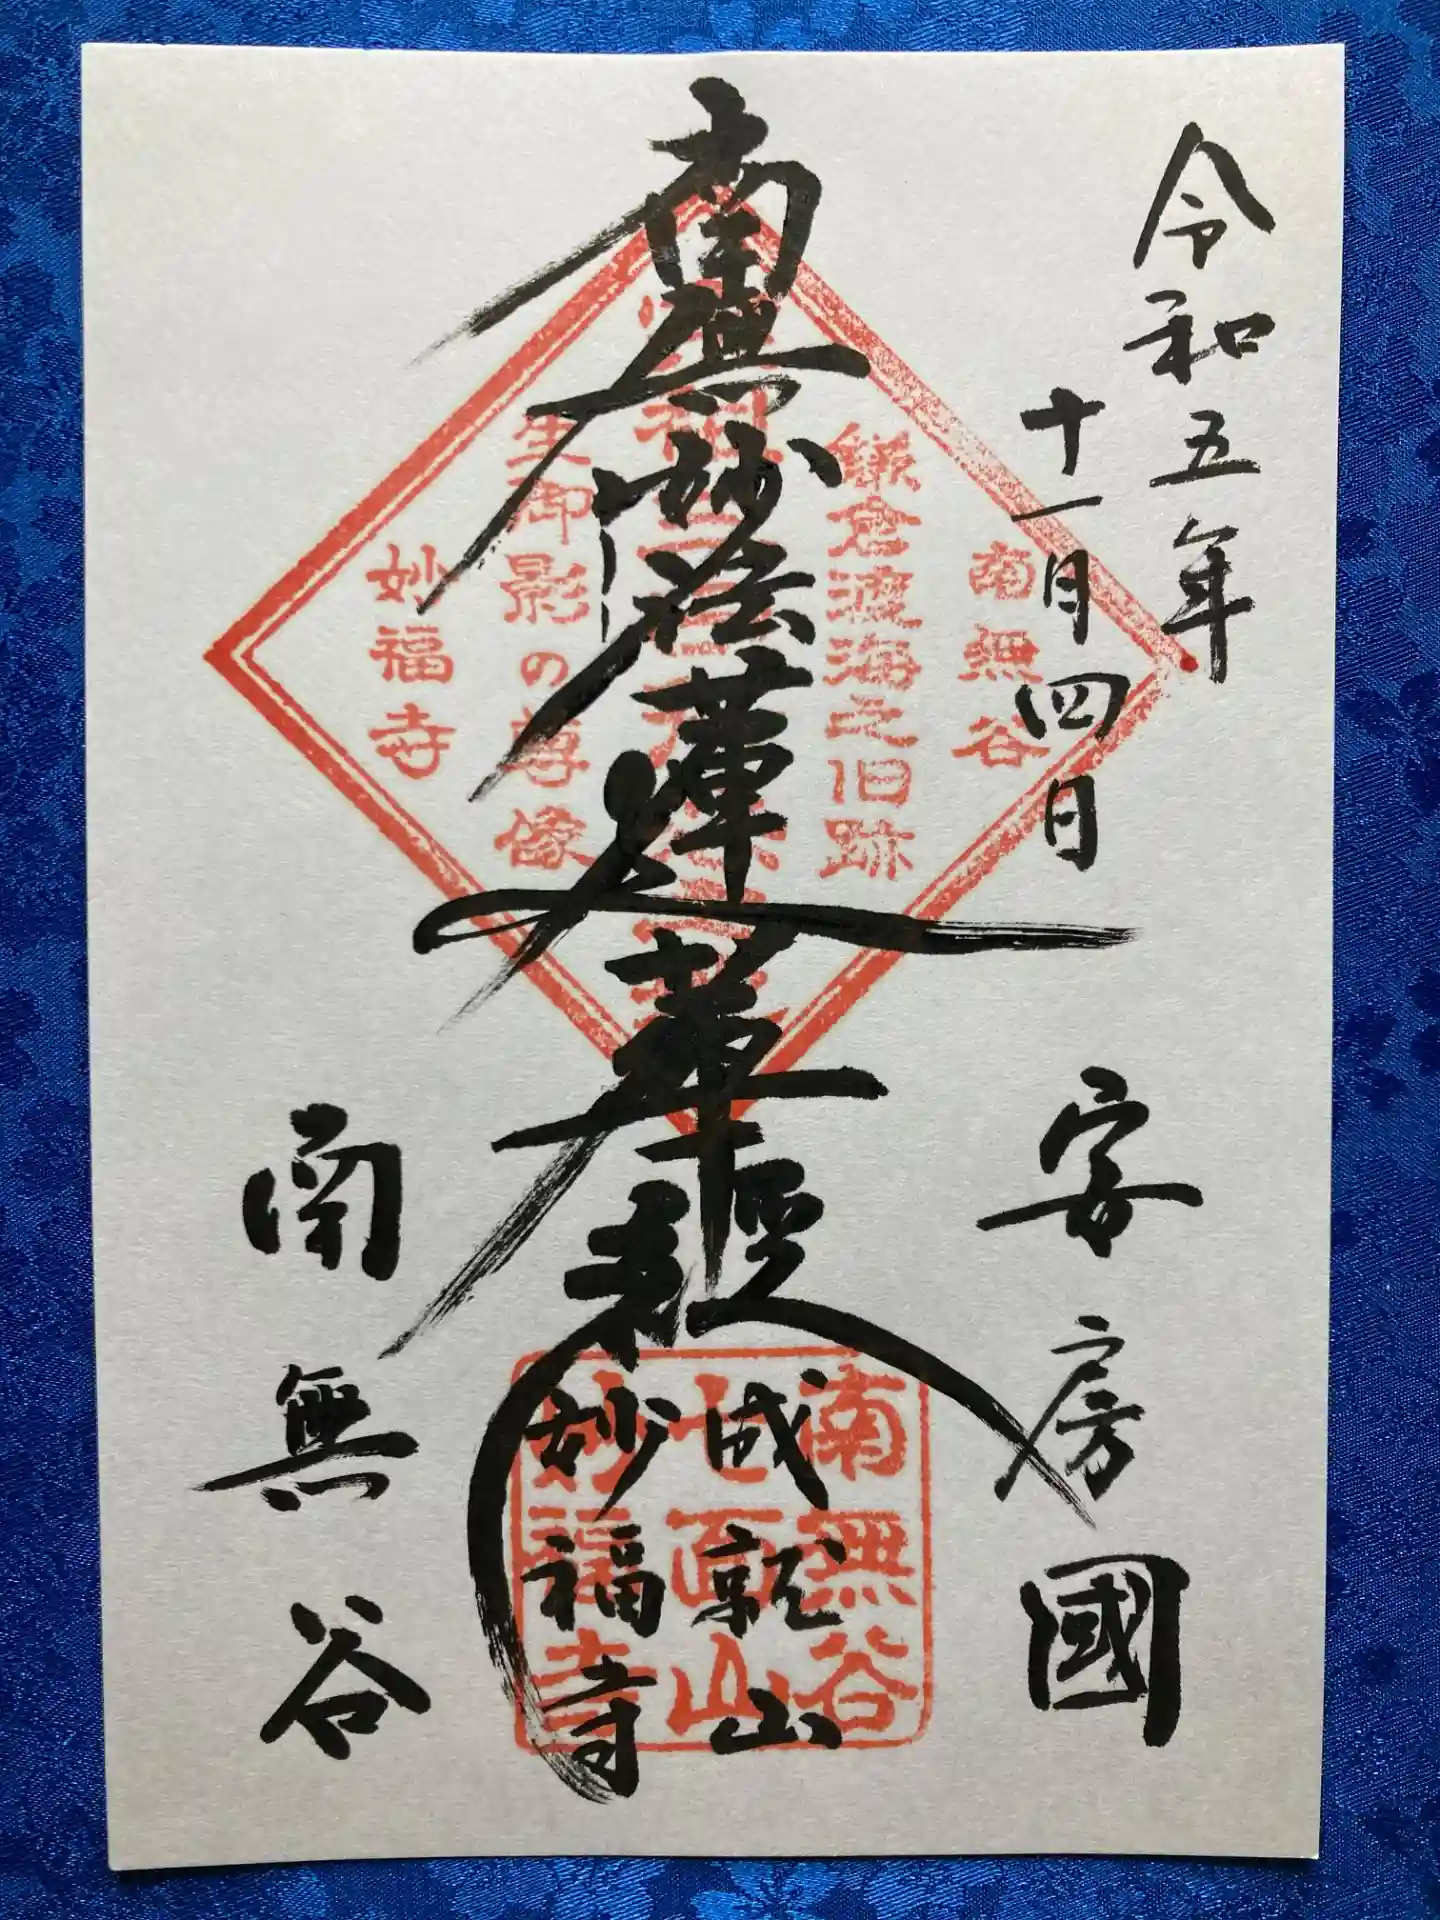 令和五年
十一月四日
安房國
南無妙法蓮華経
成就山
妙福寺
南無谷
南無谷
鎌倉渡海之旧跡
生御影の尊像
妙福寺
南無谷
七面山
妙福寺